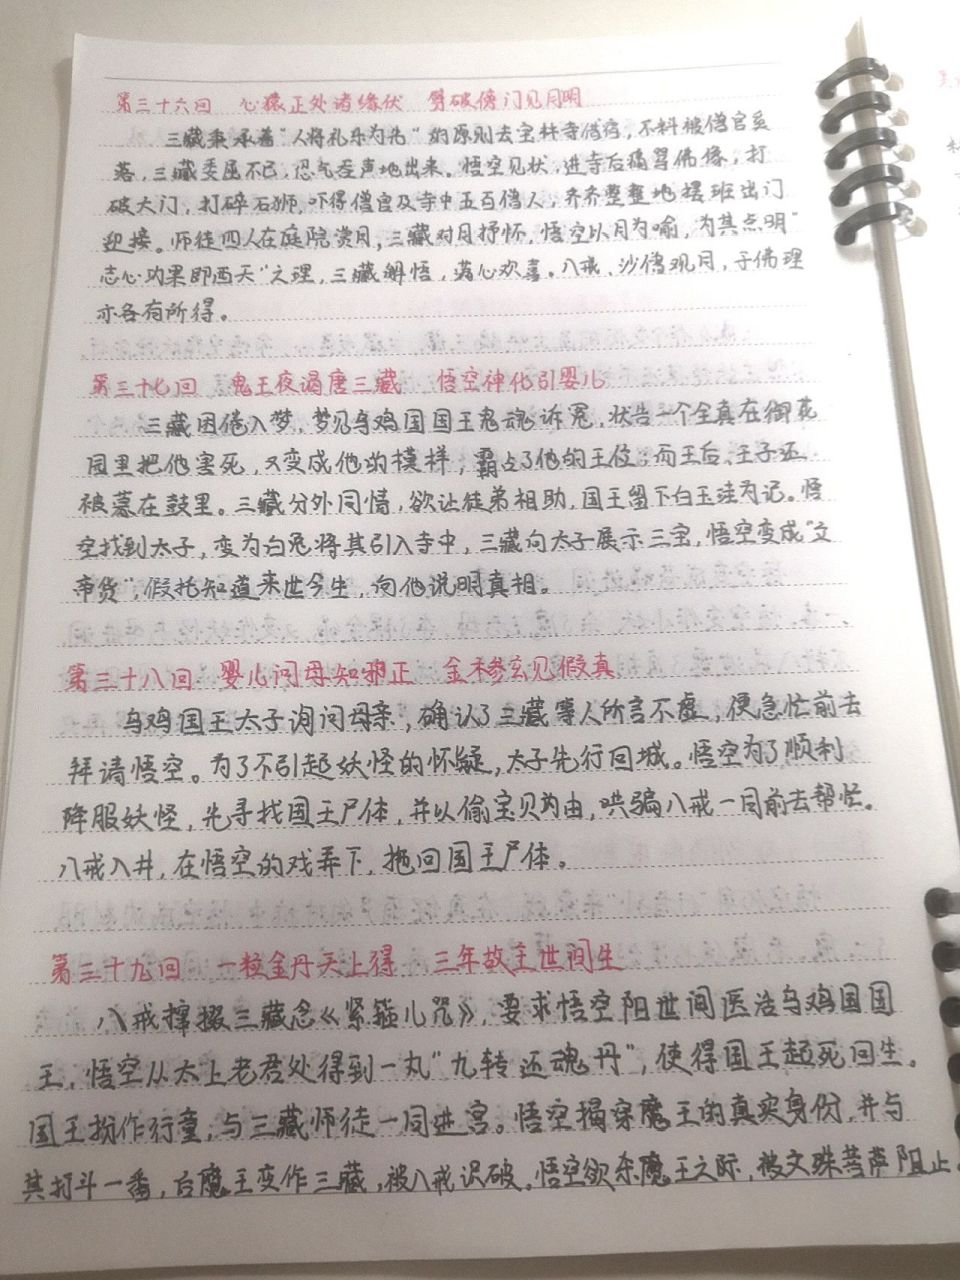 第三十六回 心猿正处诸缘伏 劈破傍门见月明
三藏秉承着“人将礼乐为先”的原则去宝林寺借宿，不料被僧官奚
落，三藏委屈不已，忍气吞声地出来。悟空见状，进寺后痛骂佛像，打
破大门，打碎石狮，吓得僧官及寺中五百僧人，齐齐整整地摆班出门
迎接。师徒四人在庭院赏月，三藏对月抒怀，悟空以月为喻，为其点明“
志心功果即西天”之理，三藏解悟，满心欢喜。八戒、沙僧观月，于佛理
亦各有所得。
第三十七回 鬼王夜谒唐三藏 悟空神化引婴儿
三藏困倦入梦，梦见乌鸡国国王鬼魂诉冤，状告一个全真在御花
园里把他害死，又变成他的模样，霸占了他的王位；而王后、王子还
被蒙在鼓里。三藏分外同情，欲让徒弟相助，国王留下白玉珪为记。悟
空找到太子，变为白兔将其引入寺中，三藏向太子展示三宝，悟空变成“立
帝货”，假托知道来世今生，向他说明真相。
第三十八回 婴儿问母知邪正 金木参玄见假真
乌鸡国王太子询问母亲，确认了三藏等人所言不虚，便急忙前去
拜请悟空。为了不引起妖怪的怀疑，太子先行回城。悟空为了顺利
降服妖怪，先寻找国王尸体，并以偷宝贝为由，哄骗八戒一同前去帮忙。
八戒入井，在悟空的戏弄下，拖回国王尸体。
第三十九回 一粒金丹天上得 三年故主世间生
八戒撺掇三藏念《紧箍儿咒》，要求悟空阳世间医治乌鸡国国
王，悟空从太上老君处得到一丸“九转还魂丹”，使得国王起死回生。
国王扮作行童，与三藏师徒一同进宫。悟空揭穿魔王的真实身份，并与
其打斗一番，台魔王变作三藏，被八戒识破。悟空欲杀魔王之际，被文殊菩萨阻止。